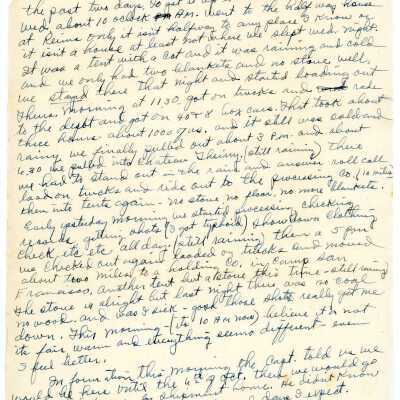 the past two days, so
Wed. about 10 oclock P.M. went to the half way house
at Reims only it isn't halfway to any place I know or
it isn't a house at least not where we slept wed. night.
It was a tent with a cot and it was raining and cold
and we only had two blankets and no stove well,
we stand there that night and started loading out
Thurs. morning at 1130, got on trucks and rode
to the depot and got on 40 + 8 box cars. This took about
three hours - about 1000 of us. and it still was cold and
rainy. We finally pulled out about 3 P.M. and about
430 we pulled into Chateau Thierry, (still raining) There
we had to stand out in the rain and answer roll call
load on trucks and ride out to the processing Co. (10 miles)
then into tents again - No stove no floor, no more blankets.
Early yesterday morning we started processing checking
records, getting shots (I got typhoid) showdown clothing
check, etc etc all day. (still raining) Then a 5 pm
we checked out again loaded on trucks and moved
about two miles to a holding Co. in Camp San
Francisco, another tent but a stove this time - still raining
The stove is alright but last night there was no coal
no wood. and was I sick - good those shots really got me
down. This morning (its 10 AM now) believe it or not
its fair, warm and everything seems different - even
I feel better.
In formation this morning the Capt. told us we
would be here until the 4th of Oct. then we would go
for shipment home. He didn't know
days I expect.